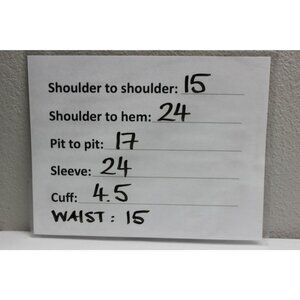 Shoulder to shoulder: 15
Shoulder to hem: 24
Pit to pit: 17
Sleeve: 24
Cuff: 4.5
WAIST: 15